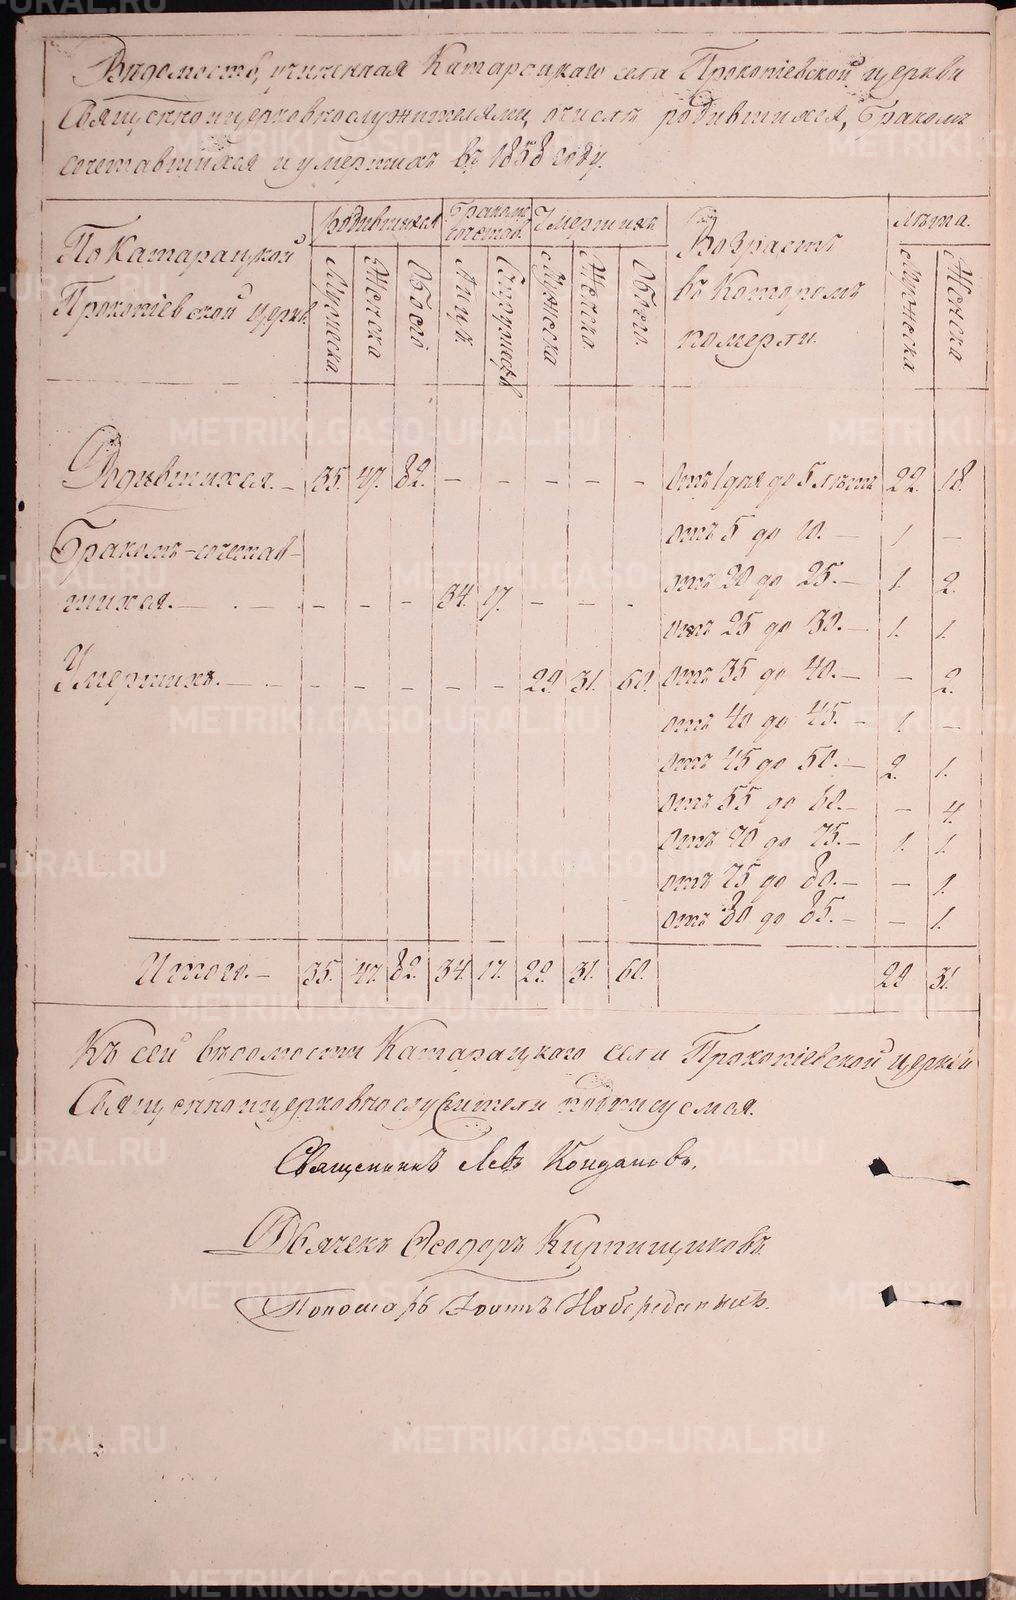 Вѣдомость, учиненная Катарацкаго села Прокопіевской церкви
Священноицерковнослужителями, о числѣ родившихся, бракомъ
сочетавшихся и умершихъ въ 1858 году.
По Катарацкой
Прокопіевской церкв.
Родившихся
Бракомъ сочетав.
Умершихъ
Возрастъ
въ которомъ
померли.
лѣта.
Мужеска.
Женска
Обоего
Лицъ.
Супружествъ
Мужеска
Женска.
Обоего.
Мужеска
Женска
Родившихся. — 35. 47. 82. — — — — — Отъ 1 дня до 5 лѣтъ 22. 18.
отъ 5 до 10. — 1. —
Бракомъ-сочетав-
шихся. — — — — — 34. 17. — — — отъ 20 до 25. — 1. 2.
отъ 25 до 30. — 1. 1.
Умершихъ. — — — — — — — 29. 31. 60. отъ 35 до 40. — — 2.
отъ 40 до 45. — 1. —
отъ 45 до 50. — 2. 1.
отъ 55 до 60. — — 4.
отъ 70 до 75. — 1. 1.
отъ 75 до 80. — — 1.
отъ 80 до 85. — — 1.
Итого. — 35. 47. 82. 34. 17. 29. 31. 60. 29 31.
Къ сей вѣдомости Катарацкаго села Прокопіевской церкви
Священноицерковнослужители подписуемся.
Священникъ Левъ Кондаковъ.
Дьячекъ Ѳеодоръ Кирпищиковъ
Пономарь Іоаннъ Набереданныхъ.
METRIKI.GASO-URAL.RU